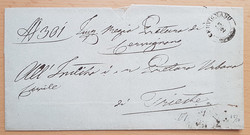 CERVIGNANO
N 301 Imp. Regia Pretura di
Cervignano
All'Inclita i. r. Pretura Urbana
Civile
di Trieste